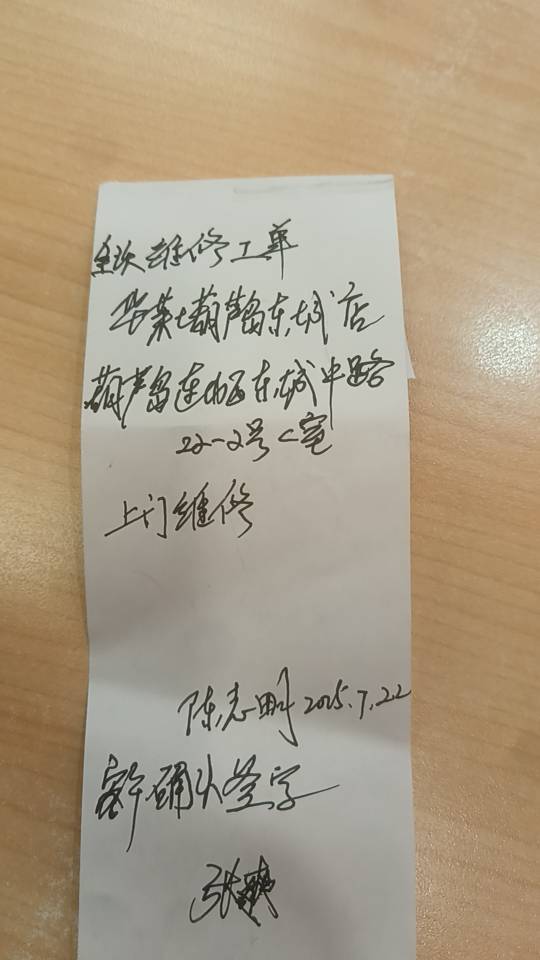 维修工单
葫芦岛东城店
葫芦岛连山区东城中路
22-2号C室
上门维修
陈志明 2025.7.22
客户确认签字
张